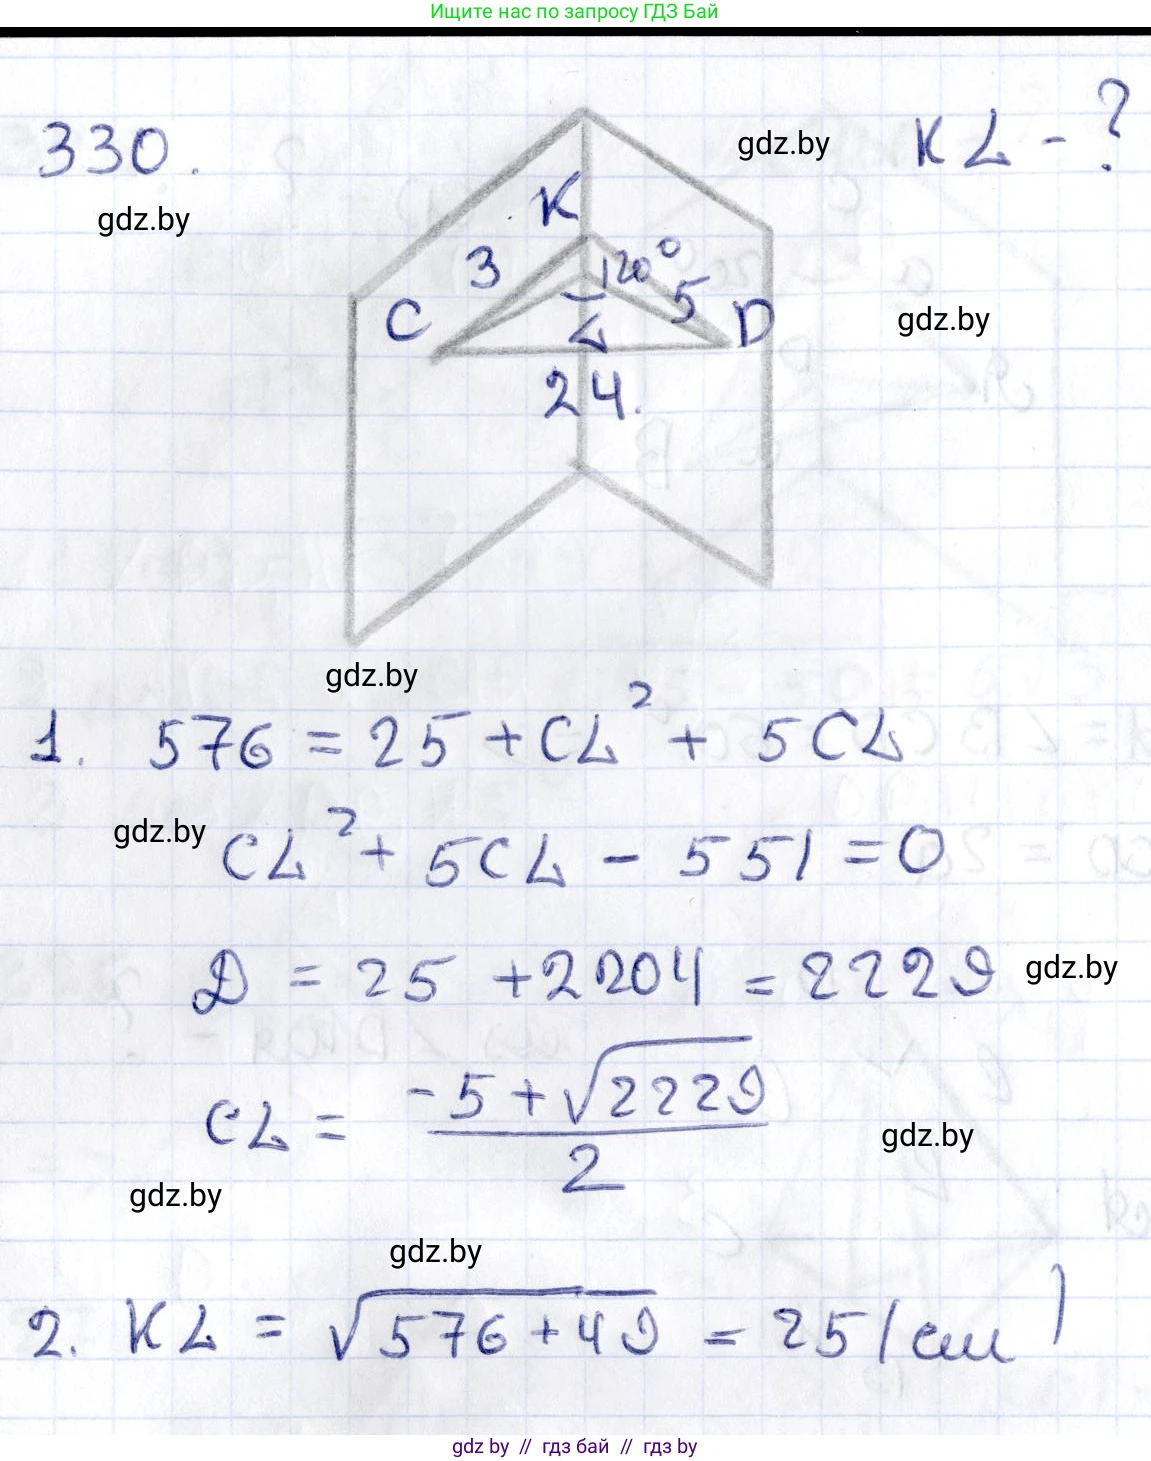 Ищите нас по запросу ГДЗ Бай
330.
gdz.by
KL - ?
gdz.by
K
3
120°
5
C
D
L
24.
gdz.by
gdz.by
1. 576 = 25 + CL² + 5CL
gdz.by
CL² + 5CL - 551 = 0
D = 25 + 2204 = 2229
gdz.by
CL = (-5 + √2229) / 2
gdz.by
gdz.by
gdz.by
2. KL = √576 + 49 = 25 (см)
gdz by // гдз бай // гдз by